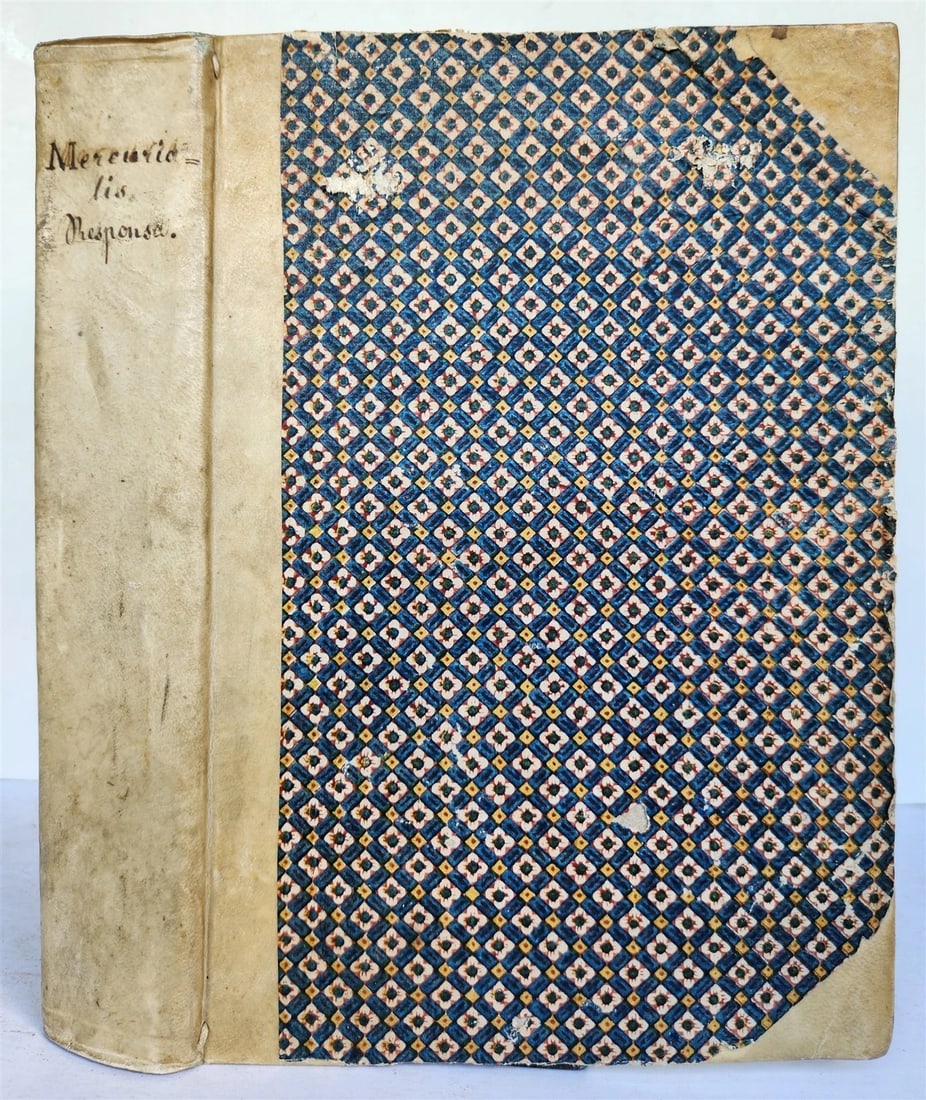 Mercuria=
lis.
Responsa.